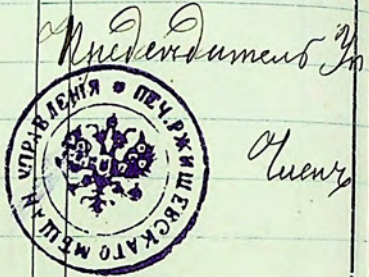 Председатель Уп
Членъ
ПЕЧ. РЖИЩЕВСКАГО МѢЩАН. УПРАВЛЕНІЯ